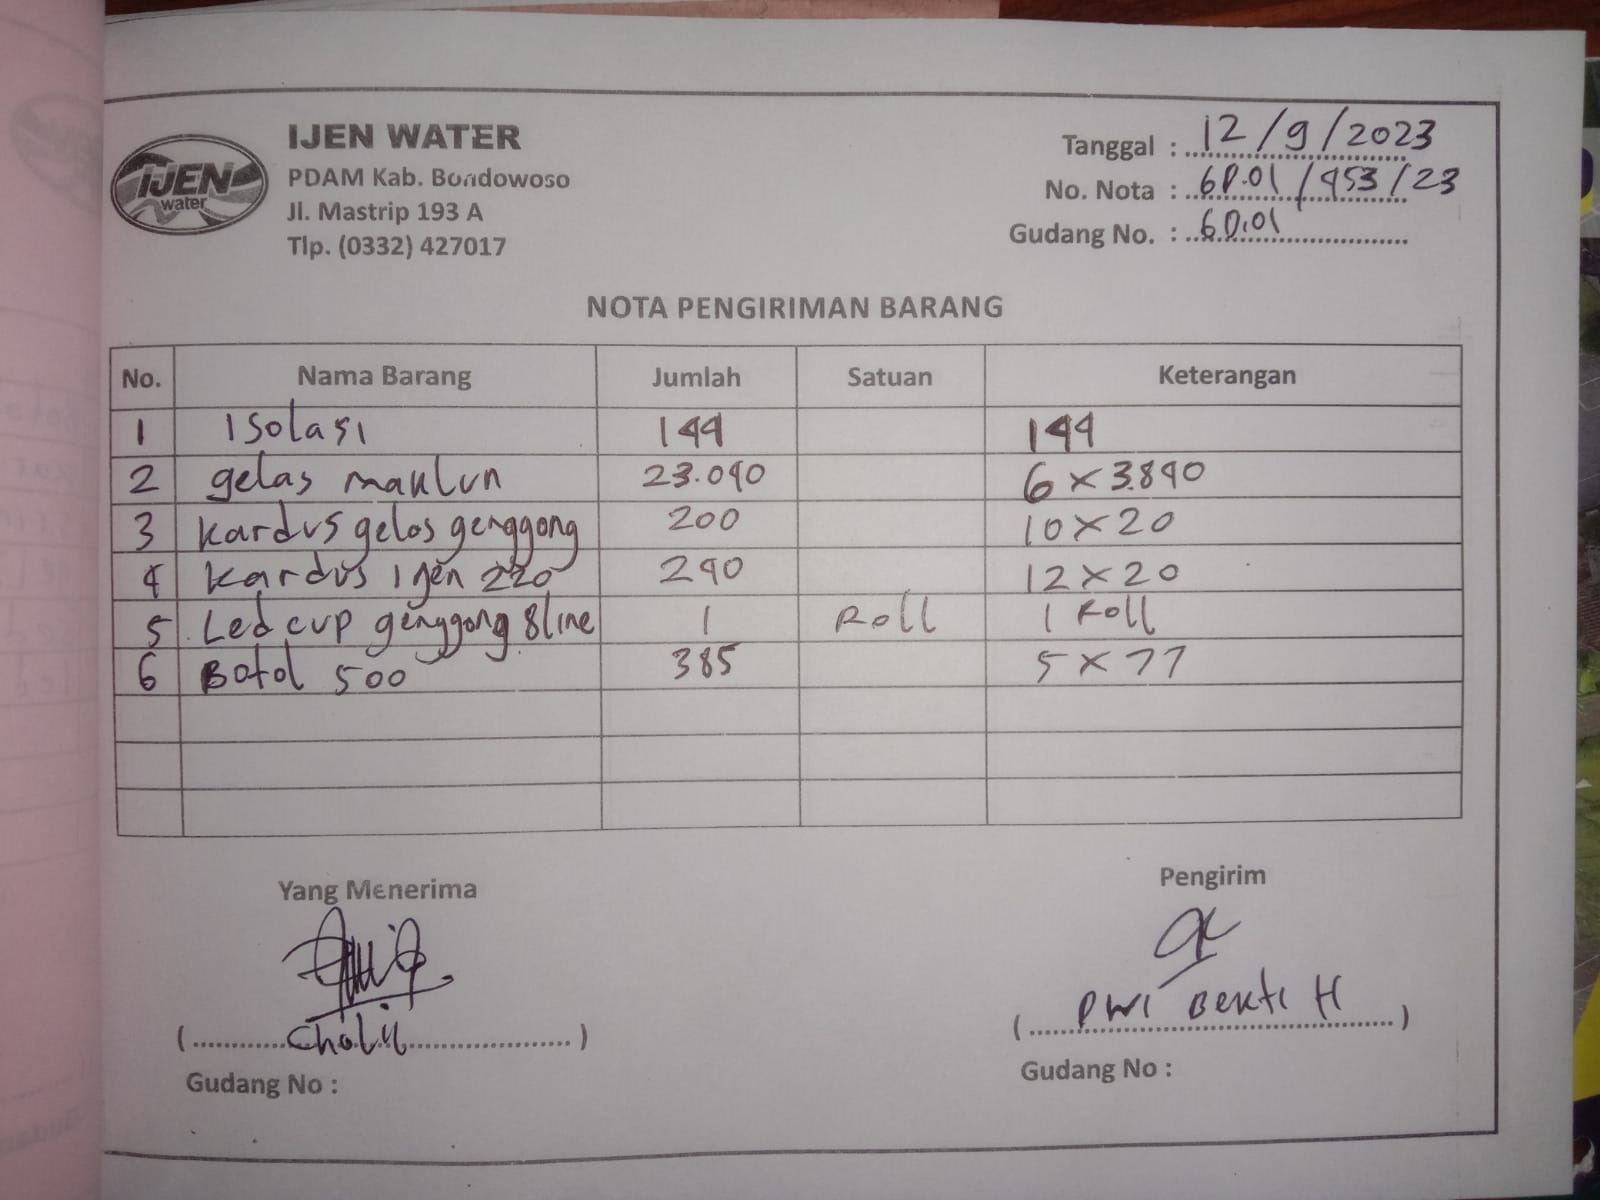 IJEN water
IJEN WATER
PDAM Kab. Bondowoso
Jl. Mastrip 193 A
Tlp. (0332) 427017
Tanggal : 12/9/2023
No. Nota : 6D.01/453/23
Gudang No. : 6D.01
NOTA PENGIRIMAN BARANG
No. Nama Barang Jumlah Satuan Keterangan
1 Isolasi 144 144
2 gelas maklun 23.040 6 x 3.840
3 Kardus gelas genggong 200 10 x 20
4 Kardus Ijen 220 240 12 x 20
5 Led cup genggong 8 line 1 Roll 1 Roll
6 Botol 500 385 5 x 77
Yang Menerima
Pengirim
(Cholil)
(Dwi Bekti H)
Gudang No :
Gudang No :